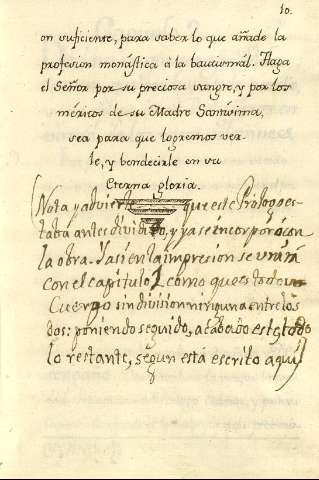 10.
on suficiente, para saber lo que añade la
profesion monástica á la baucismál. Haga
el Señor por su preciosa sangre, y por los
méritos de su Madre Santísima,
sea para que logremos ver-
le, y bendecirle en su
Eterna gloria.
(Nota y advierte que este Prólogo es-
taba antes dividido, y ya se incorporó con
la obra. Y asi en la impresion se unirá
con el capitulo 1 como que es todo un
Cuerpo sin division ninguna entre los
dos: poniendo seguido, acabado esto todo
lo restante, segun está escrito aqui)